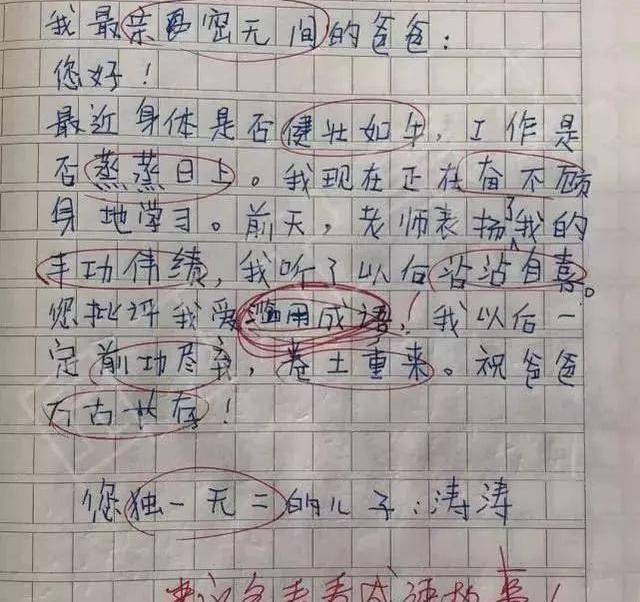 我最亲密无间的爸爸：
您好！
最近身体是否健壮如牛，工作是
否蒸蒸日上。我现在正在奋不顾
身地学习。前天，老师表扬了我的
丰功伟绩，我听了以后沾沾自喜。
您批评我爱滥用成语！我以后一
定前功尽弃，卷土重来。祝爸爸
万古长存！
您独一无二的儿子：涛涛